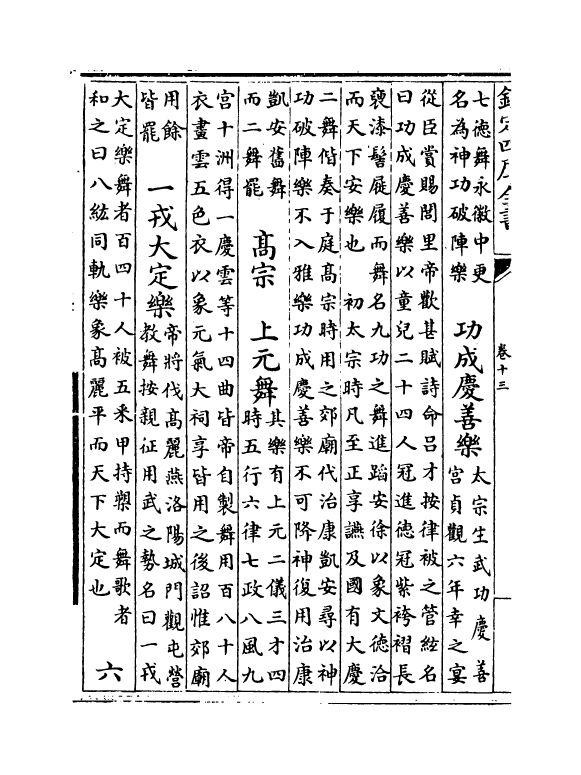 欽定四庫全書
卷十三
七德舞永徽中更
名為神功破陣樂
功成慶善樂
太宗生武功慶善
宮貞觀六年幸之宴
從臣賞賜閭里帝歡甚賦詩命呂才按律被之管絃名
曰功成慶善樂以童兒二十四人冠進德冠紫袴褶長
褏漆髻屣履而舞名九功之舞進蹈安徐以象文德洽
而天下安樂也 初太宗時凡至正享讌及國有大慶
二舞偕奏于庭髙宗時用之郊廟代治康凱安尋以神
功破陣樂不入雅樂功成慶善樂不可降神復用治康
凱安舊舞
而二舞罷
髙宗 上元舞
其樂有上元二儀三才四
時五行六律七政八風九
宮十洲得一慶雲等十四曲皆帝自製舞用百八十人
衣畫雲五色衣以象元氣大祠享皆用之後詔惟郊廟
用餘
皆罷
一戎大定樂
帝將伐髙麗燕洛陽城門觀屯營
教舞按親征用武之勢名曰一戎
大定樂舞者百四十人被五采甲持槊而舞歌者
和之曰八紘同軌樂象髙麗平而天下大定也
六